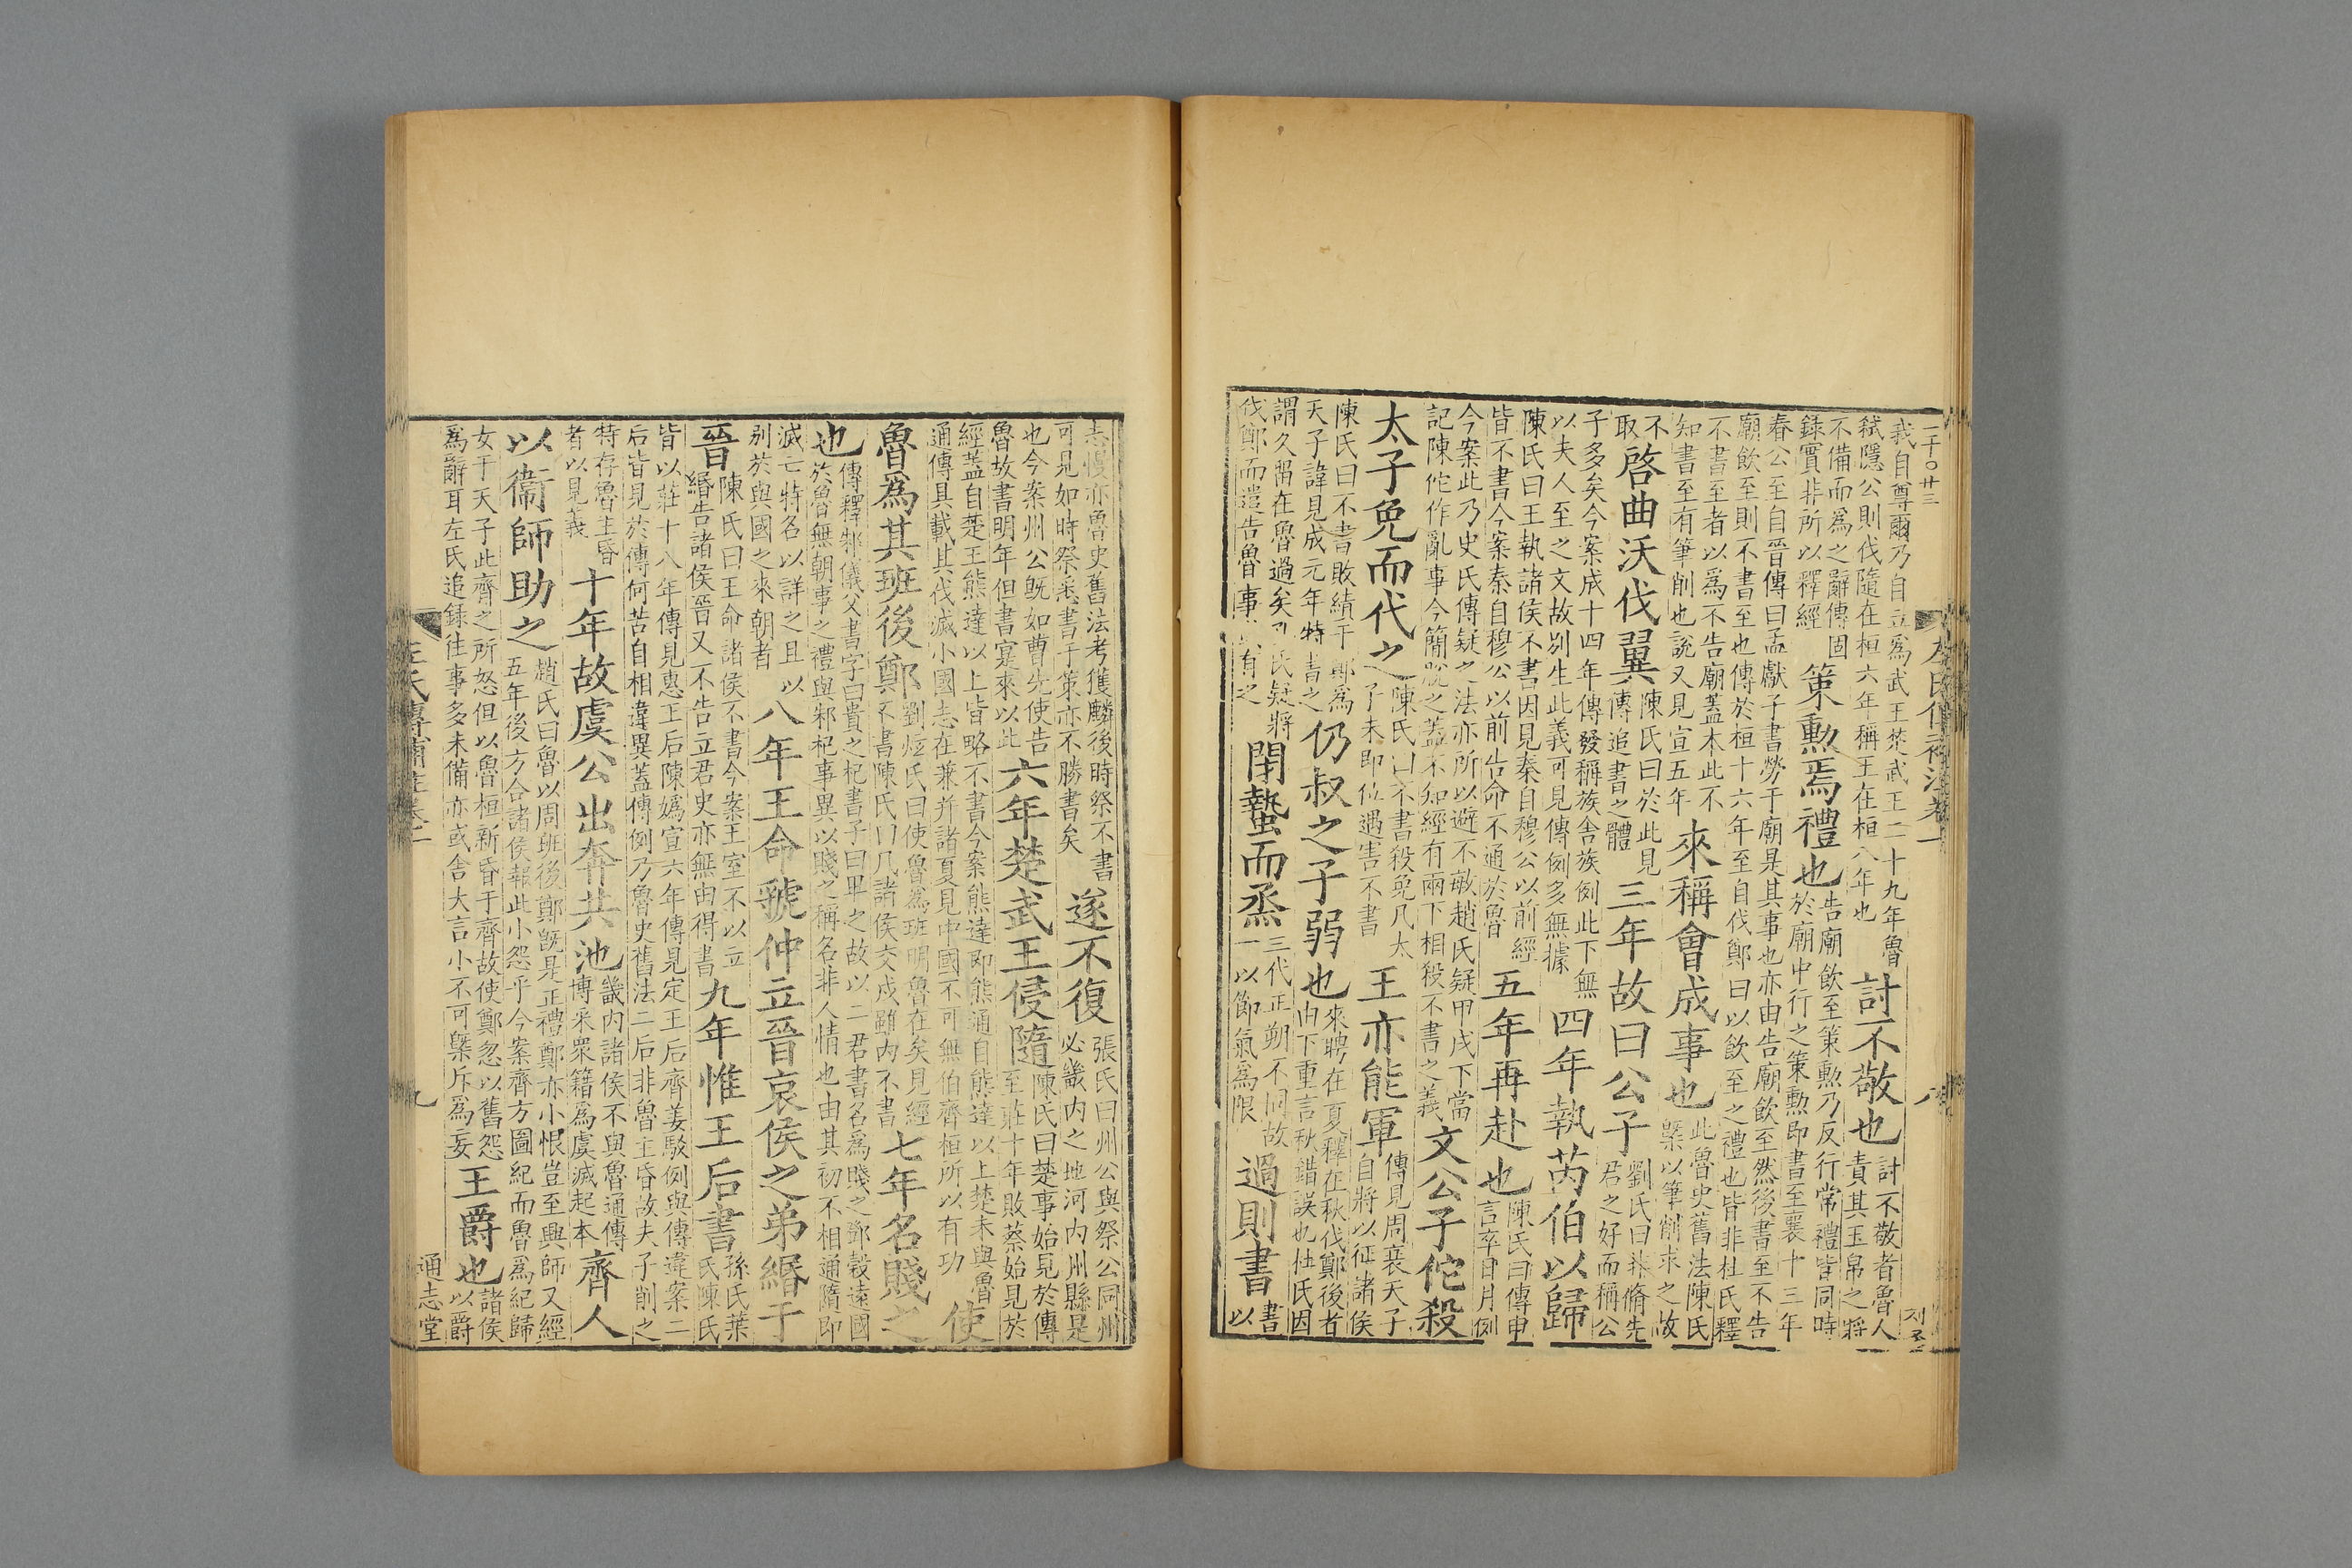 二千〇廿三
左氏傳補注卷一
八
我自尊爾乃自立爲武王楚武王二十九年魯
弑隱公則伐隨在桓六年稱王在桓八年也
討不敬也
討不敬者魯人
責其玉帛之將
不備而爲之辭傳固
錄實非所以釋經
策勲焉禮也
告廟飲至策勲乃反行常禮皆同時
於廟中行之策勲即書至襄十三年
春公至自晉傳曰孟獻子書勞于廟是其事也亦由告廟飲至然後書至不告
廟飲至則不書至也傳於桓十六年至自伐鄭曰以飲至之禮也皆非杜氏釋
不書至者以爲不告廟蓋本此不
知書至有筆削也說又見宣五年
來稱會成事也
此魯史舊法陳氏
槩以筆削求之故
不
取
啓曲沃伐翼
陳氏曰於此見
傳追書之體
三年故曰公子
劉氏曰非脩先
君之好而稱公
子多矣今案成十四年傳發稱族舍族例此下無
以夫人至之文故別生此義可見傳例多無據
四年執芮伯以歸
陳氏曰王執諸侯不書因見秦自穆公以前經
皆不書今案秦自穆公以前告命不通於魯
五年再赴也
陳氏曰傳申
言卒日月例
今案此乃史氏傳疑之法亦所以避不敢趙氏疑甲戌下當
記陳佗作亂事今簡脫之蓋不知經有兩下相殺不書之義
文公子佗殺
太子免而代之
陳氏曰不書殺免凡太
子未即位遇害不書
王亦能軍
傳見周衰天子
自將以征諸侯
陳氏曰不書敗績于鄭爲
天子諱見成元年特書之
仍叔之子弱也
來聘在夏釋在秋伐鄭後者
由下重言秋錯誤也杜氏因
謂久留在魯過矣孔氏疑將
伐鄭而遣告魯事有之
閉蟄而烝
三代正朔不同故
一以節氣爲限
過則書
書
以
志慢亦魯史舊法考獲麟後時祭不書
可見如時祭悉書于策亦不勝書矣
遂不復
張氏曰州公與祭公同州
必畿内之地河内州縣是
也今案州公既如曹先使告
魯故書明年但書寔來以此
六年楚武王侵隨
陳氏曰楚事始見於傳
至莊十年敗蔡始見於
經蓋自楚王熊達以上皆略不書今案熊達即熊通自熊達以上楚未與魯
通傳具載其伐滅小國志在兼并諸夏見中國不可無伯齊桓所以有功
使
魯爲其班後鄭
劉炫氏曰使魯爲班明魯在矣見經
不書陳氏曰凡諸侯交戍雖内不書
七年名賤之
也
傳釋邾儀父書字曰貴之杞書子曰卑之故以二君書名爲賤之鄧穀遠國
於魯無朝事之禮與邾杞事異以賤之稱名非人情也由其初不相通隨即
滅亡特名以詳之且以
别於與國之來朝者
八年王命虢仲立晉哀侯之弟緡于
晉
陳氏曰王命諸侯不書今案王室不以立
緡告諸侯晉又不告立君史亦無由得書
九年惟王后書
孫氏葉
氏陳氏
皆以莊十八年傳見惠王后陳嬀宣六年傳見定王后齊姜駁例與傳違案二
后皆見於傳何苦自相違異蓋傳例乃魯史舊法二后非魯主昏故夫子削之
特存魯主昏
者以見義
十年故虞公出奔共池
畿内諸侯不與魯通傳
博采眾籍爲虞滅起本
齊人
以衞師助之
趙氏曰魯以周班後鄭既是正禮鄭亦小恨豈至興師又經
五年後方合諸侯報此小怨乎今案齊方圖紀而魯爲紀歸
女于天子此齊之所怒但以魯桓新昏于齊故使鄭忽以舊怨
爲辭耳左氏追錄往事多未備亦或舍大言小不可槩斥爲妄
王爵也
諸侯
以爵
左氏傳補注卷一
九
通志堂